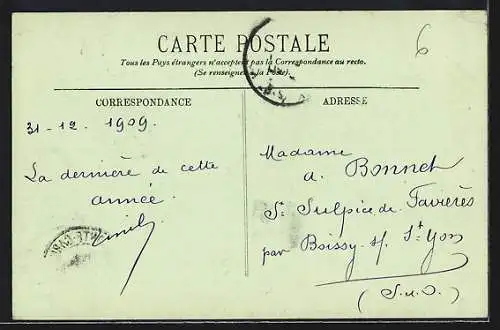 6
CARTE POSTALE
Tous les Pays étrangers n'acceptent pas la Correspondance au recto.
(Se renseigner à la Poste).
CORRESPONDANCE
ADRESSE
31-12. 1909.
La dernière de cette
année.
Madame
A. Bonnet
St Sulpice de Favières
par Boissy s/ St Yon
(S.-&-O.)